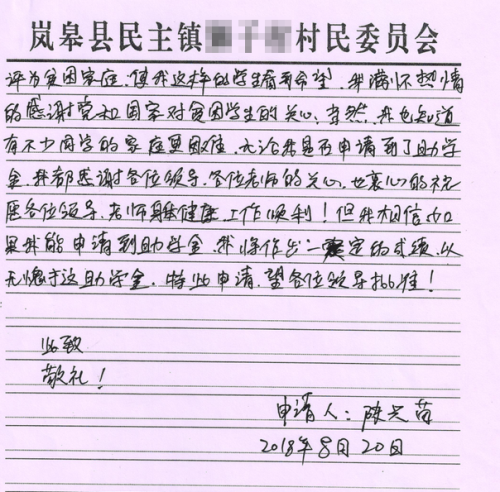 岚皋县民主镇村民委员会
评为贫困家庭,使我这样的学生看到希望,我满怀热情
的感谢党和国家对贫困学生的关心,当然,我也知道
有不少同学的家庭更困难,无论我是否申请到了助学
金,我都感谢各位领导,各位老师的关心,也衷心的祝
愿各位领导,老师身体健康,工作顺利!但我相信如
果我能申请到助学金,我将作出一定的成绩,以
无愧于这助学金,特此申请,望各位领导批准!
此致
敬礼!
申请人:陈
2018年8月20日